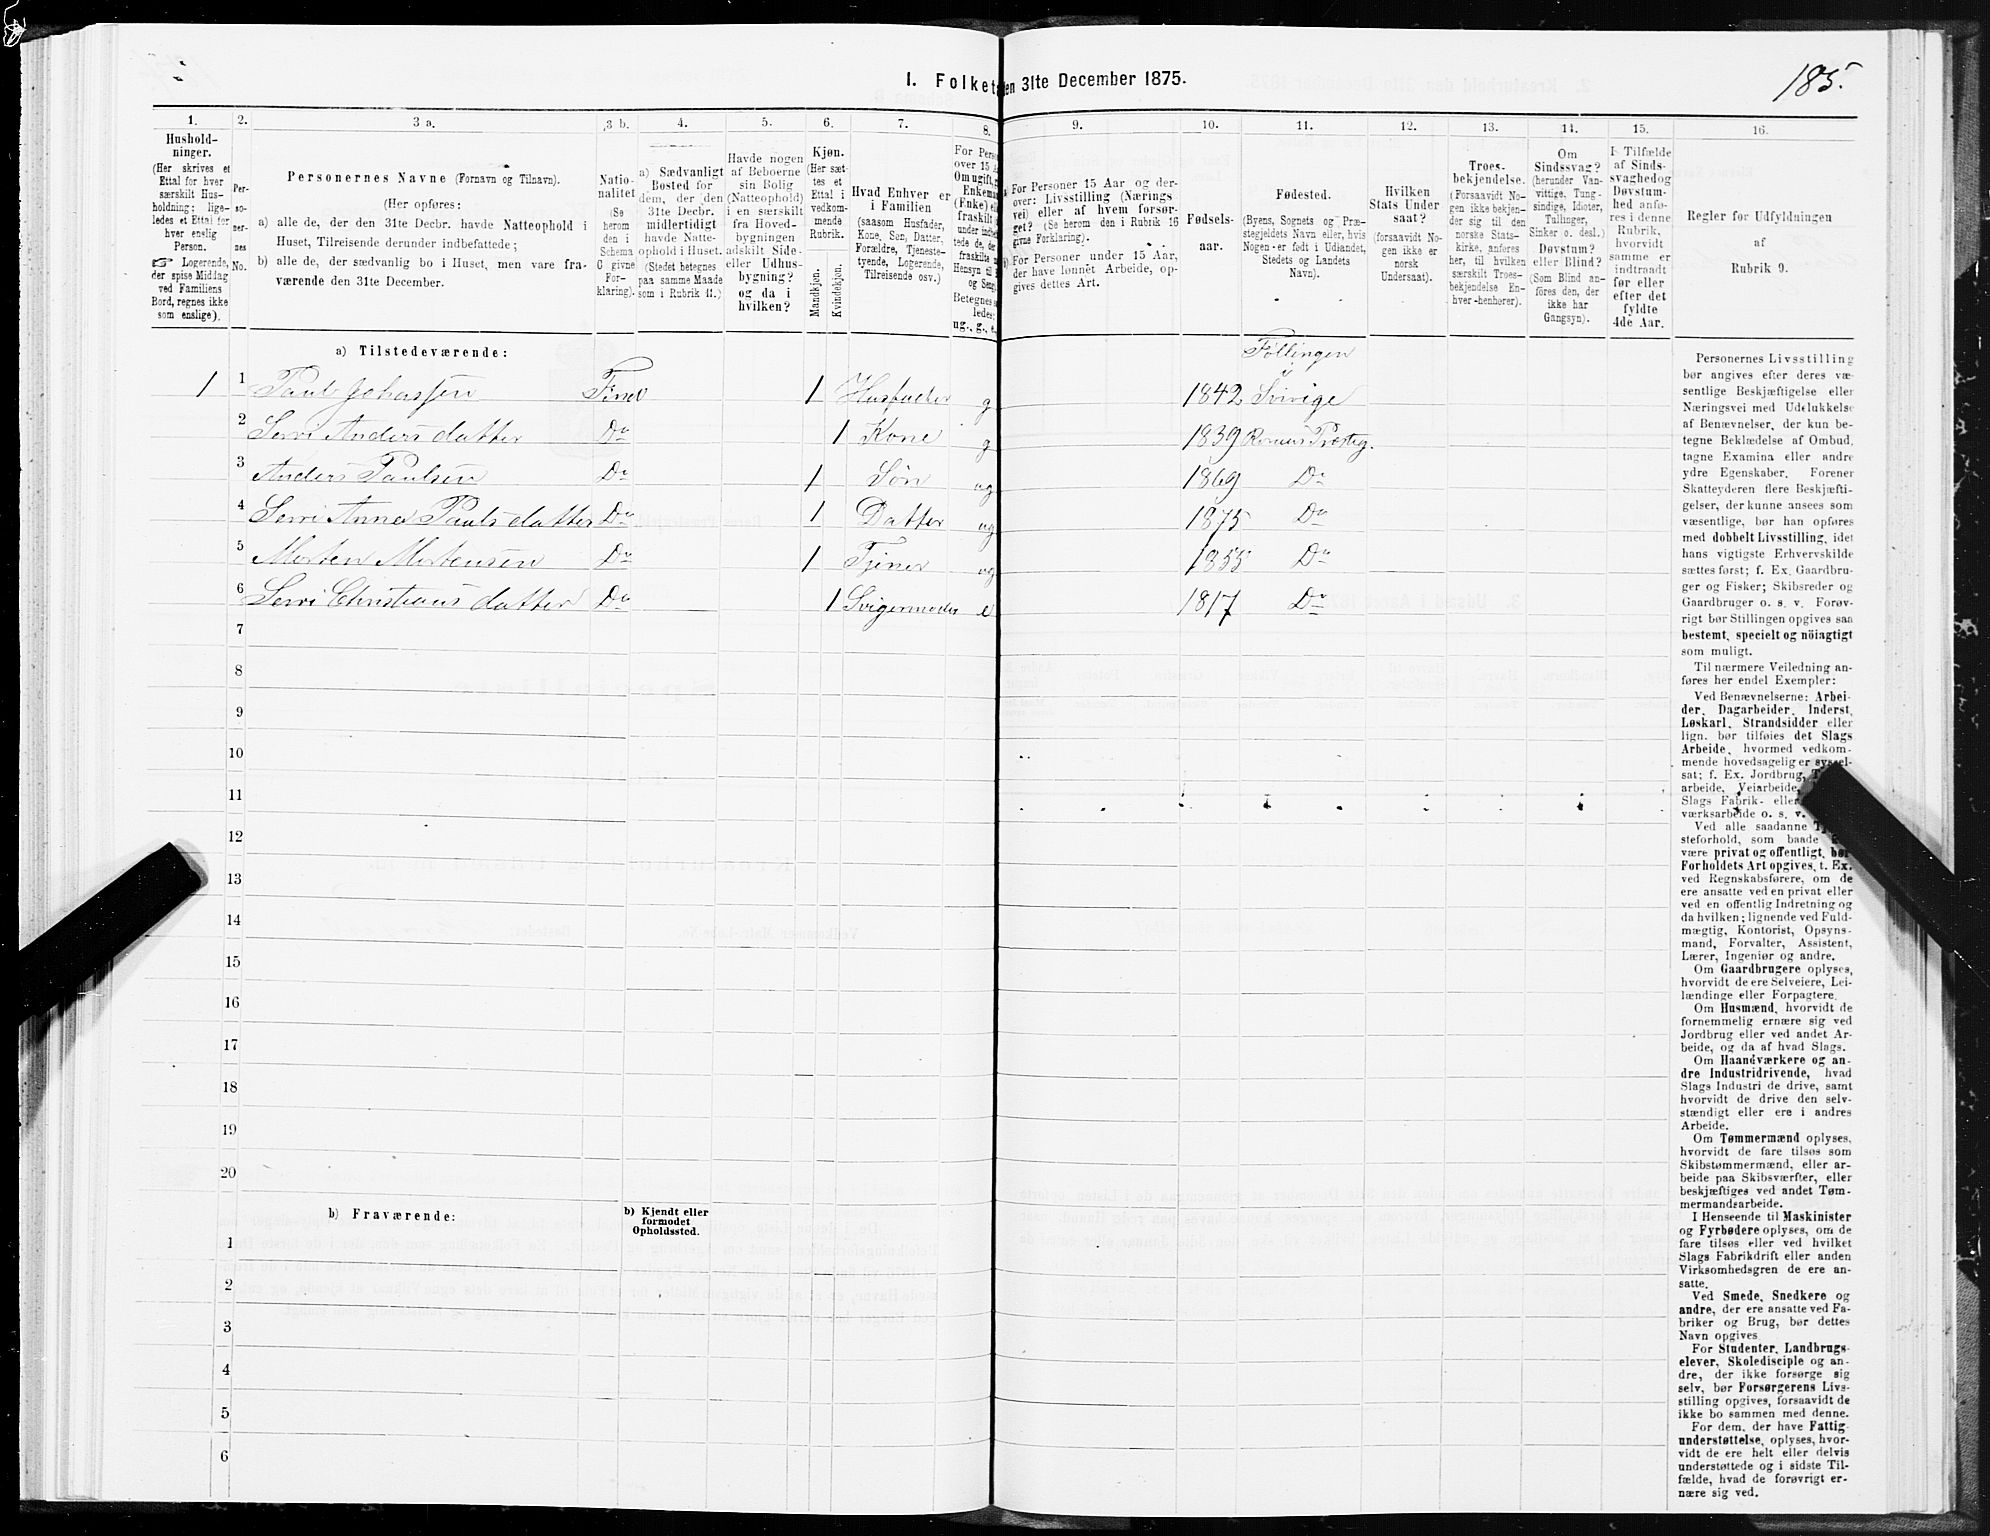 185.
I. Folket en 31te December 1875.
1. 2. 3 a. 3 b. 4. 5. 6. 7. 8. 9. 10. 11. 12. 13. 14. 15. 16.
Hushold-
ninger.
(Her skrives et
Ettal for hver
særskilt Hus-
holdning; lige-
ledes et Ettal for
hver enslig
Person.
☞ Logerende,
der spise Middag
ved Familiens
Bord, regnes ikke
som enslige).
Per-
so-
ner-
nes
No.
Personernes Navne (Fornavn og Tilnavn).
(Her opføres:
a) alle de, der den 31te Decbr. havde Natteophold i
Huset, Tilreisende derunder indbefattede;
b) alle de, der sædvanlig bo i Huset, men vare fra-
værende den 31te December.
Natio-
nalitet
(Se
herom
den i
Schema
G givne
For-
klaring).
a) Sædvanligt
Bosted for
dem, der den
31te Decbr.
midlertidigt
havde Natte-
ophold i Huset.
(Stedet betegnes
paa samme Maade
som i Rubrik 11.)
Havde nogen
af Beboerne
sin Bolig
(Natteophold)
i en særskilt
fra Hoved-
bygningen
adskilt Side-
eller Udhus-
bygning?
og da i
hvilken?
Kjøn.
(Her sæt-
tes et
Ettal i
vedkom-
mende
Rubrik.
Mandkjøn.
Kvindekjøn.
Hvad Enhver er
i Familien
(saasom Husfader,
Kone, Søn, Datter,
Forældre, Tjeneste-
tyende, Logerende,
Tilreisende osv.)
For Perso
over 15 A
Om ugift, g
Enkeman
(Enke) e
fraskilt
under indbe
tede de, de
fraskilte
Hensyn til
og Seng
Betegnes
ledes:
ug., g., e.
a) For Personer 15 Aar og der-
over: Livsstilling (Nærings
vei) eller af hvem forsør-
get? (Se herom den i Rubrik 16
givne Forklaring).
b) For Personer under 15 Aar,
der have lønnet Arbeide, op-
gives dettes Art.
Fødsels-
aar.
Fødested.
(Byens, Sognets og Præ-
stegjeldets Navn eller, hvis
Nogen er født i Udlandet,
Stedets og Landets
Navn).
Hvilken
Stats Under
saat?
(forsaavidt No-
gen ikke er
norsk
Undersaat).
Troes-
bekjendelse.
(Forsaavidt No-
gen ikke bekjen-
der sig til den
norske Stats-
kirke, anføres
her, til hvilken
særskilt Troes-
bekjendelse En-
hver henhører).
Om
Sindssvag?
(herunder Van-
vittige, Tung-
sindige, Idioter,
Tullinger,
Sinker o. desl.)
Døvstum?
eller Blind?
(Som Blind an-
føres den, der
ikke har
Gangsyn).
I Tilfælde
af Sinds-
svaghed og
Døvstum-
hed anfø-
res i denne
Rubrik,
hvorvidt
samme er
indtraadt
før eller
efter det
fyldte
4de Aar.
Regler for Udfyldningen
af
Rubrik 9.
a) Tilstedeværende:
Føllingen
i
1 1 Paul Johassen Find 1 Husfader g 1842 Sverige
2 Serri Andersdatter Do 1 Kone g 1839 Præsteg.
3 Anders Paulsen Do 1 Søn ug 1869 Do
4 Serri Anna Paulsdatter Do 1 Datter ug 1875 Do
5 Morten Mortensen Do 1 Tjener ug 1855 Do
6 Serri Christiansdatter Do 1 Svigermoder e 1817 Do
7
8
9
10
11
12
13
14
15
16
17
18
19
20
b) Fraværende:
b) Kjendt eller
formodet
Opholdssted.
1
2
3
4
5
6
Personernes Livsstilling
bør angives efter deres væ-
sentlige Beskjæftigelse eller
Næringsvei med Udelukkelse
af Benævnelser, der kun be-
tegne Beklædelse af Ombud,
tagne Examina eller andre
ydre Egenskaber. Forener
Skatteyderen flere Beskjæfti-
gelser, der kunne ansees som
væsentlige, bør han opføres
med dobbelt Livsstilling, idet
hans vigtigste Erhvervskilde
sættes først; f. Ex. Gaardbru-
ger og Fisker; Skibsreder og
Gaardbruger o. s. v. Forøv-
rigt bør Stillingen opgives saa
bestemt, specielt og nöiagtigt
som muligt.
Til nærmere Veiledning an-
føres her endel Exempler:
Ved Benævnelserne: Arbei-
der, Dagarbeider, Inderst,
Løskarl, Strandsidder eller
lign. bør tilføies det Slags
Arbeide, hvormed vedkom-
mende hovedsagelig er syssel-
sat; f. Ex. Jordbrug,
arbeide, Veiarbeide,
Slags Fabrik- eller
værksarbeide o. s. v.
Ved alle saadanne
steforhold, som baade
være privat og offentligt, bør
Forholdets Art opgives, t. Ex.
ved Regnskabsførere, om de
ere ansatte ved en privat eller
ved en offentlig Indretning og
da hvilken; lignende ved Fuld-
mægtig, Kontorist, Opsyns-
mand, Forvalter, Assistent,
Lærer, Ingeniør og andre.
Om Gaardbrugere oplyses,
hvorvidt de ere Selveiere, Lei-
lændinge eller Forpagtere.
Om Husmænd, hvorvidt de
fornemmelig ernære sig ved
Jordbrug eller ved andet Ar-
beide, og da af hvad Slags.
Om Haandværkere og an-
dre Industridrivende, hvad
Slags Industri de drive, samt
hvorvidt de drive den selv-
stændigt eller ere i andres
Arbeide.
Om Tømmermænd oplyses,
hvorvidt de fare tilsøs som
Skibstømmermænd, eller ar-
beide paa Skibsværfter, eller
beskjæftiges ved andet Tøm-
mermandsarbeide.
I Henseende til Maskinister
og Fyrbødere oplyses, om de
fare tilsøs eller ved hvilket
Slags Fabrikdrift eller anden
Virksomhedsgren de ere an-
satte.
Ved Smede, Snedkere og
andre, der ere ansatte ved Fa-
briker og Brug, bør dettes
Navn opgives
For Studenter, Landbrugs-
elever, Skoledisciple og an-
dre, der ikke forsørge sig
selv, bør Forsørgerens Livs-
stilling opgives, forsaavidt de
ikke bo sammen med denne.
For dem, der have Fattig-
understøttelse, oplyses, hvor-
vidt de ere helt eller delvis
understøttede og i sidste Til-
fælde, hvad de forøvrigt er-
nære sig ved.